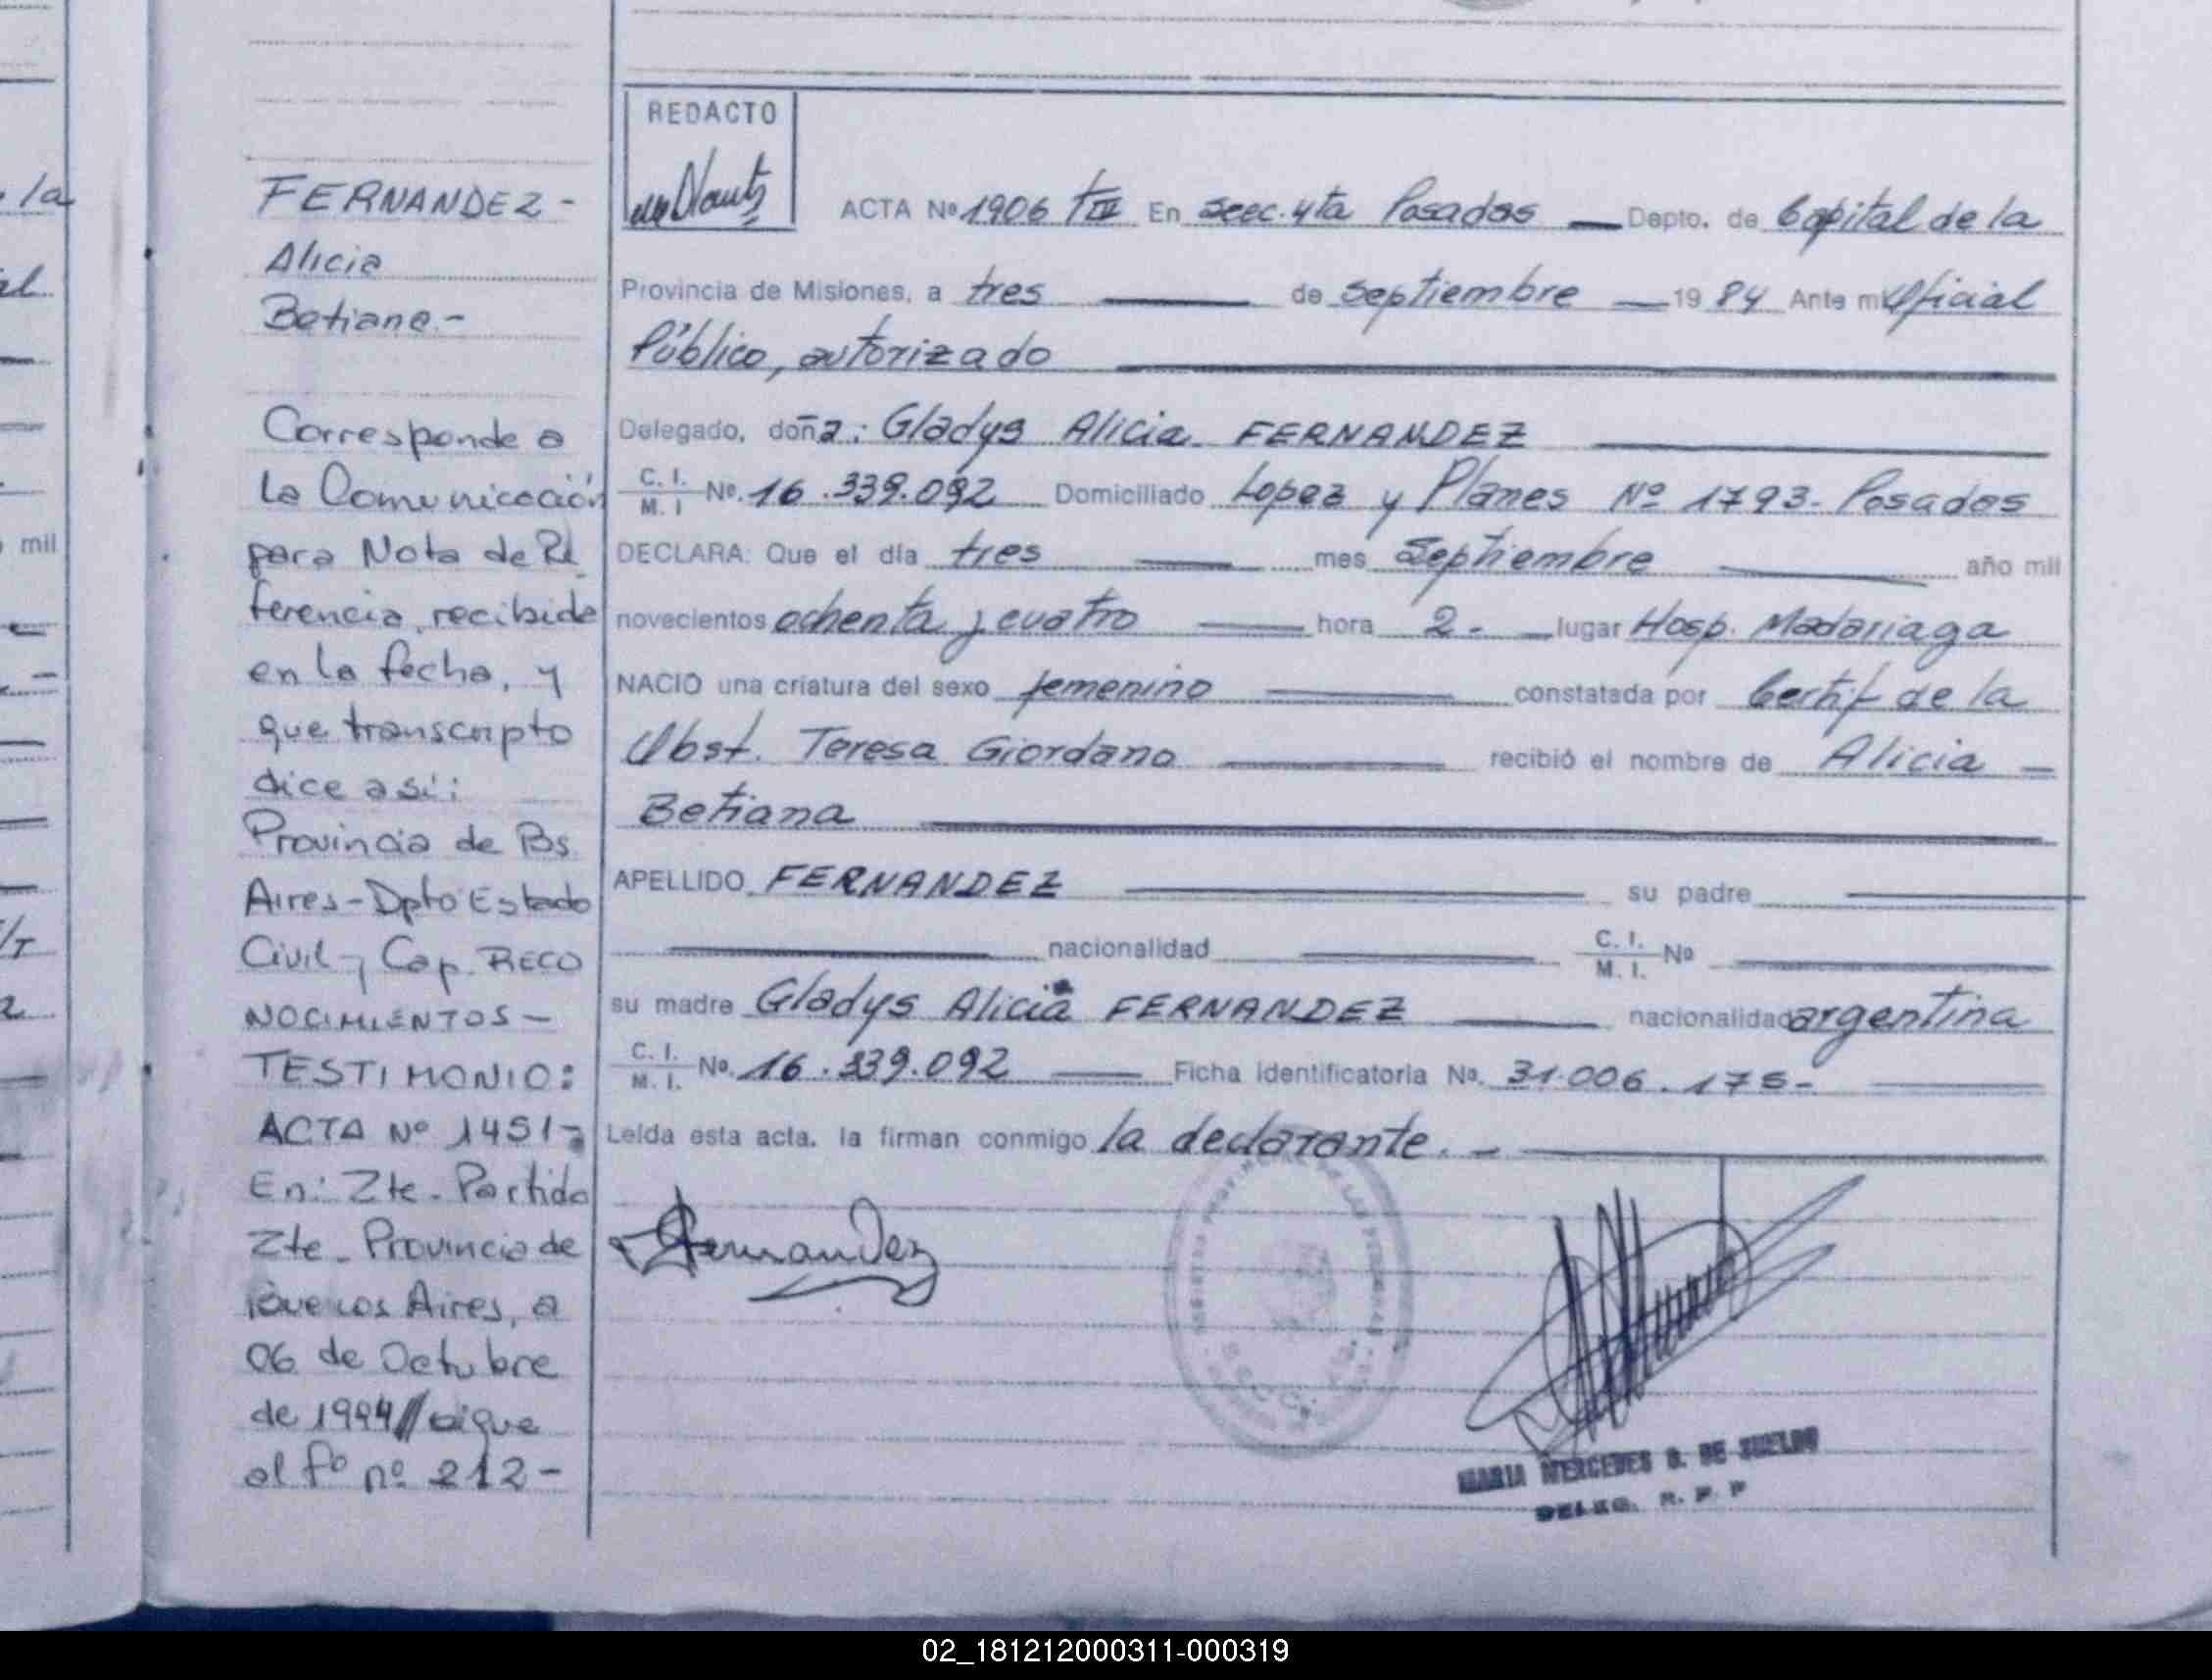 FERNANDEZ -
Alicia
Betiana.-
Corresponde a
la Comunicación
para Nota de Re
ferencia, recibida
en la fecha, y
que transcripto
dice así:
Provincia de Bs.
Aires - Dpto Estado
Civil y Cap. RECO
NOCIMIENTOS -
TESTIMONIO:
ACTA Nº 1451-
En: Zte. Partido
Zte. Provincia de
Buenos Aires, a
06 de Octubre
de 1994//sigue
al fº nº 212-
REDACTO
ACTA Nº 1906 TIV En secc. 4ta Posadas Depto. de Capital de la
Provincia de Misiones, a tres de septiembre 1984 Ante mi Oficial
Público, autorizado
Delegado, doña: Gladys Alicia FERNANDEZ
C. I. M. I Nº. 16.339.092 Domiciliado Lopez y Planes Nº 1793- Posadas
DECLARA: Que el día tres mes Septiembre año mil
novecientos ochenta y cuatro hora 2.- lugar Hosp. Madariaga
NACIO una criatura del sexo femenino constatada por Certif de la
Obst. Teresa Giordano recibió el nombre de Alicia -
Betiana
APELLIDO FERNANDEZ su padre
nacionalidad C. I. M. I. No
su madre Gladys Alicia FERNANDEZ nacionalidad argentina
C. I. M. I. No. 16.339.092 Ficha identificatoria No. 31.006.175-
Leída esta acta, la firman conmigo la declarante. -
Fernandez
MARIA MERCEDES B. DE SUELDO
DELEG. R. P. P
02_181212000311-000319